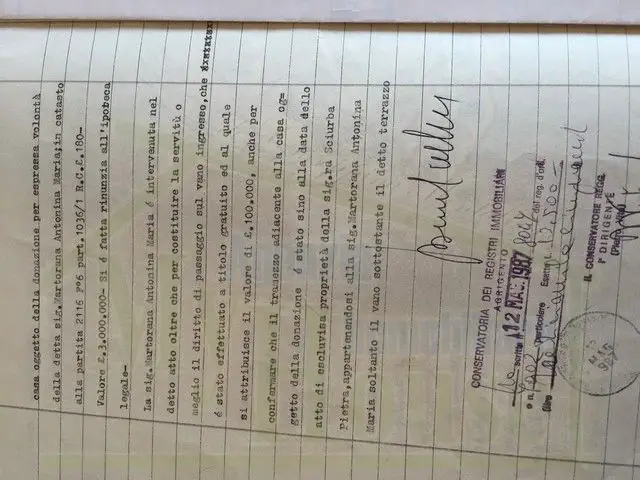 casa oggetto della donazione per espressa volontà
della detta sig.Martorana Antonina Maria;in catasto
alla partita 2116 part.1036/1 R.C.£.180-
Valore £.3.000.000- Si é fatta rinunzia all'ipoteca
legale-
La sig.Martorana Antonina Maria é intervenuta nel
detto atto oltre che per costituire la servitù o
meglio il diritto di passaggio sul vano ingresso,che
é stato effettuato a titolo gratuito ed al quale
si attribuisce il valore di £.100.000, anche per
confermare che il tramezzo adiacente alla casa og=
getto della donazione é stato sino alla data dello
atto di esclusiva proprietà della sig.ra Sciurba
Pietra,appartenendosi alla sig.Martorana Antonina
Maria soltanto il vano sottostante il detto terrazzo
CONSERVATORIA DEI REGISTRI IMMOBILIARI
AGRIGENTO
12 MAG.1987
e n. Particolare del reg. d'ord.
Esatte L.
lire
IL CONSERVATORE REGG.
1° DIRIGENTE